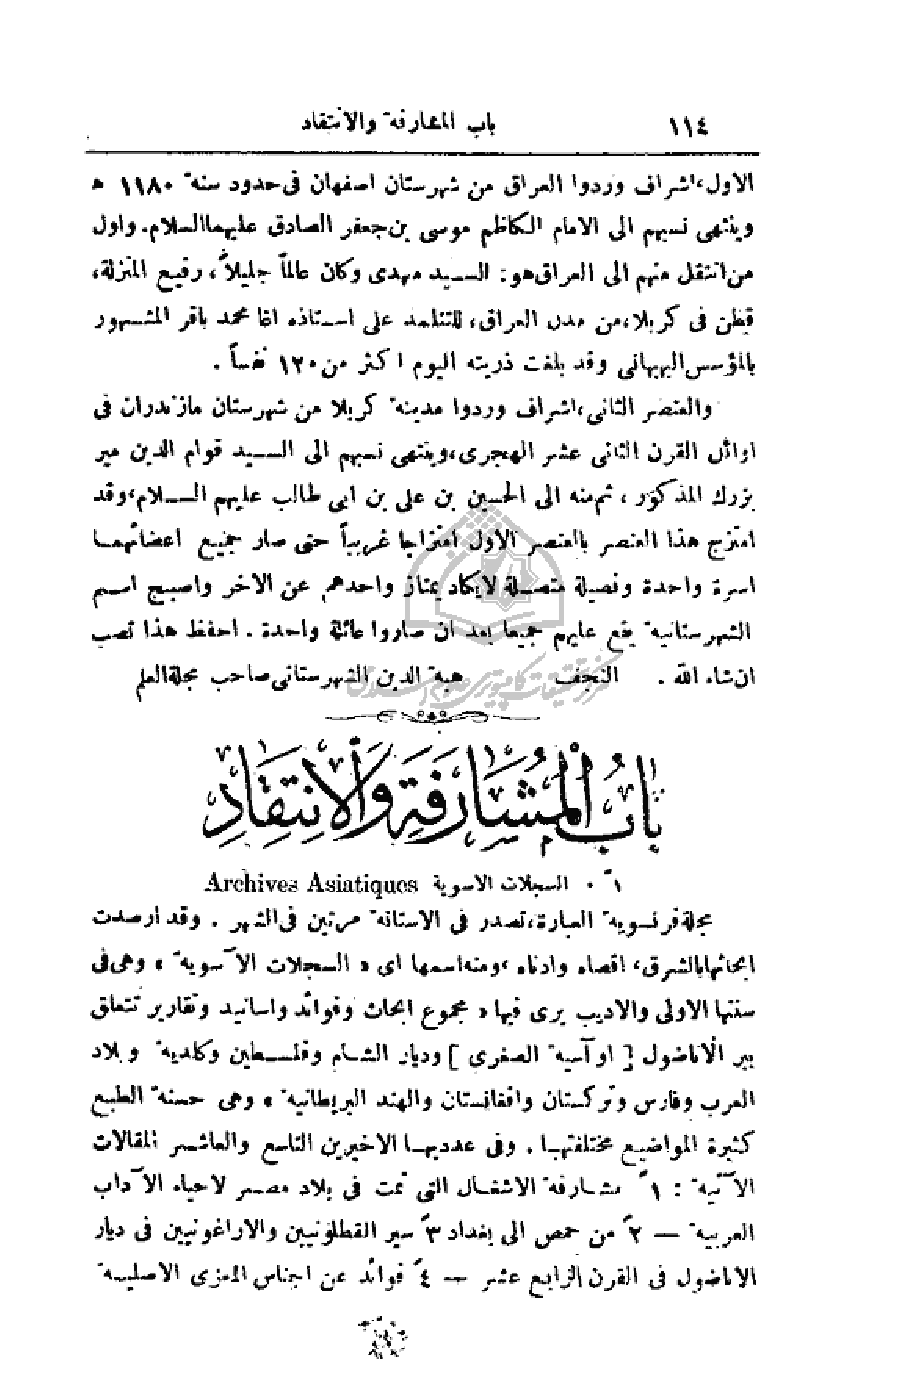 ١١٤ باب المشارفة والانتقاد
الاول،اشراف وردوا العراق من شهرستان اصفهان فى حدود سنة ١١٨٠ ه
وينتهى نسبهم الى الامام الكاظم موسى بن جعفر الصادق عليهما السلام. واول
من انتقل منهم الى العراق هو: السيد مهدى وكان عالماً جليلاً، رفيع المنزلة،
قطن فى كربلا،من مدن العراق، للتتلمذ على استاذه اغا محمد باقر المشهور
بالمؤسس البهبهانى وقد بلغت ذريته اليوم اكثر من ١٢٠ نفساً .
والعنصر الثانى،اشراف وردوا مدينة كربلا من شهرستان مازندران فى
اوائل القرن الثانى عشر الهجرى،وينتهى نسبهم الى السيد قوام الدين مير
بزرك المذكور ، ثم منه الى الحسين بن على بن ابى طالب عليهم السلام،وقد
امتزج هذا العنصر بالعنصر الاول امتزاجا غريباً حتى صار جميع اعضائهما
اسرة واحدة وفصيلة متصلة لايكاد يمتاز واحدهم عن الاخر واصبح اسم
الشهرستانية يقع عليهم جميعا بعد ان صاروا عائلة واحدة . احفظ هذا تصب
ان شاء الله . النجف هبة الدين الشهرستانى صاحب مجلة العلم
بَابُ الْمُشَارَفَةِ وَالْاِنْتِقَادِ
١ً . السجلات الاسوية Archives Asiatiques
مجلة فرنسوية العبارة،تصدر فى الاستانة مرتين فى الشهر . وقد ارصدت
ابحاثها بالشرق، اقصاه وادناه ،ومنه اسمها اى « السجلات الآسوية » وهى فى
سنتها الاولى والاديب يرى فيها « مجموع ابحاث وفوائد واسانيد وتقارير تتعلق
ببر الاناضول [ او آسية الصغرى ] وديار الشام وفلسطين وكلدية وبلاد
العرب وفارس وتركستان وافغانستان والهند البريطانية » وهى حسنة الطبع
كثيرة المواضيع مختلفتها . وفى عدديها الاخيرين التاسع والعاشر المقالات
الآتية : ١ً مشارفة الاشغال التى تمت فى بلاد مصر لاحياء الآداب
العربية — ٢ً من حمص الى بغداد ٣ً سير القطلونيين والاراغونيين فى ديار
الاناضول فى القرن الرابع عشر — ٤ً فوائد عن اجناس المعزى الاصلية